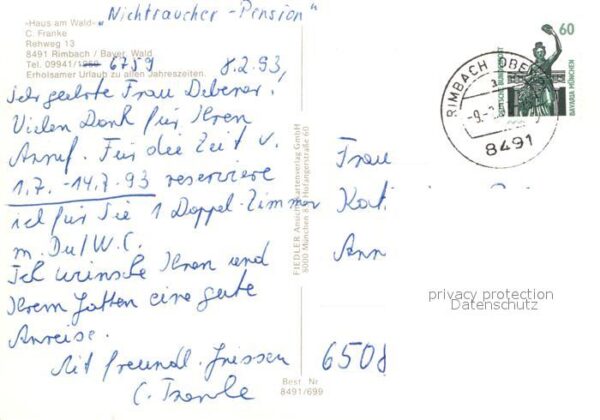 "Nichtraucher-Pension"
«Haus am Wald»
C. Franke
Rehweg 13
8491 Rimbach / Bayer. Wald
Tel. 09941/1259 6759
Erholsamer Urlaub zu allen Jahreszeiten.
8.2.93,
Sehr geehrte Frau Deberer.
Vielen Dank für Ihren
Anruf. Für die Zeit v.
1.7. -14.7.93 reserviere
ich für Sie 1 Doppel-Zimmer
m. Du/W.C.
Ich wünsche Ihnen und
Ihrem Gatten eine gute
Anreise.
Mit freundl. Grüssen
C. Franke
FIEDLER Ansichtskartenverlag GmbH
8000 München 83, Hofangerstraße 60
Best Nr
8491/699
60
DEUTSCHE BUNDESPOST
BAVARIA MÜNCHEN
RIMBACH OBE
a
-9.-
8491
Frau
Kat
Ann
6508
privacy protection
Datenschutz